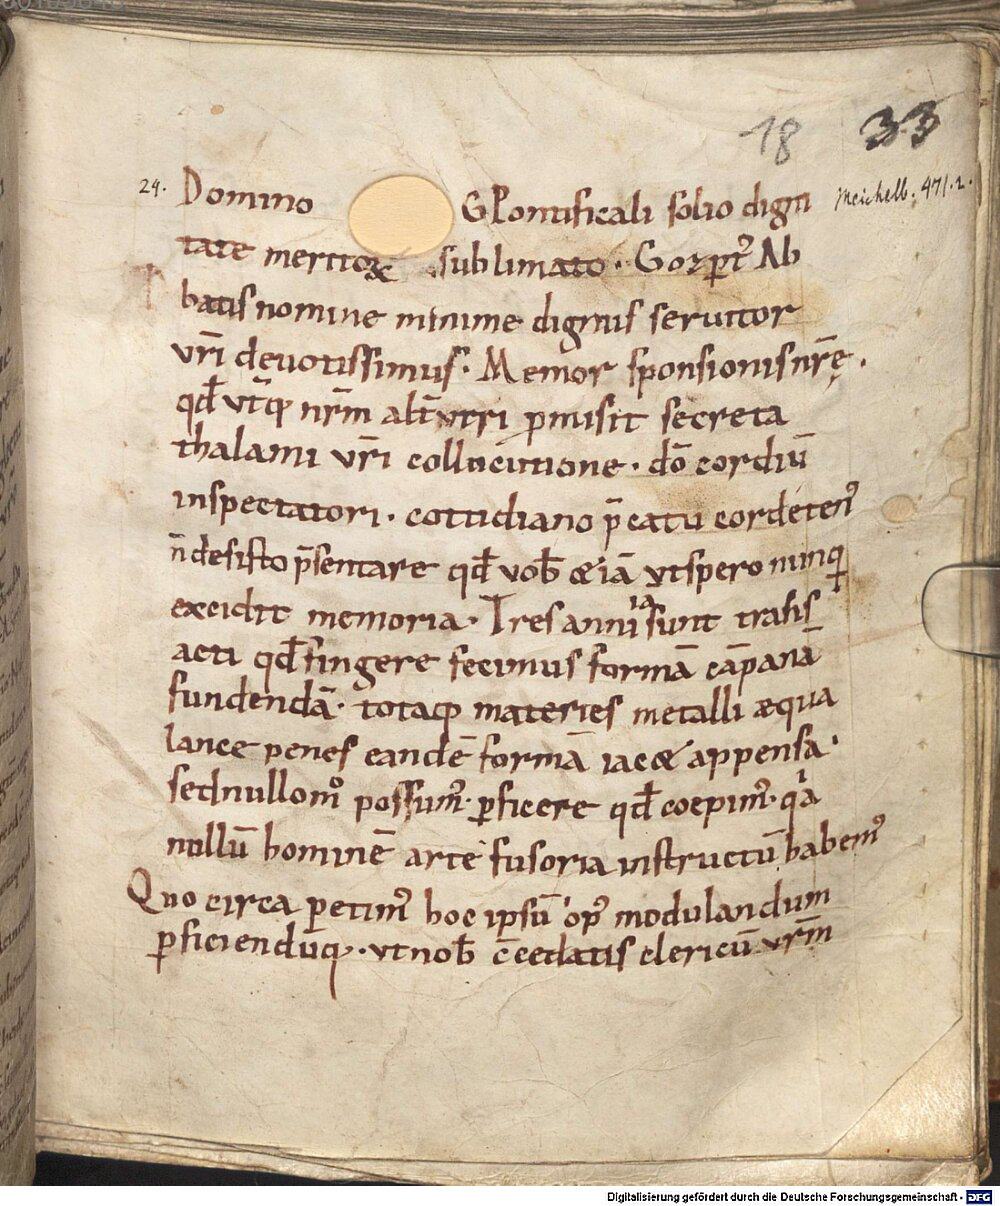 18 33
24. Domino G Pontificali solio digni Meichelb. 471. 2.
tate meritoꝝ sublimato · Gozꝑt᷒ Ab
batis nomine minime dignus seruitor
vr̄i deuotissimus · Memor sponsionis nr̄ę .
qd̄ vt̄q; nr̄m alt̄vtri ꝓmisit secreta
thalami vr̄i collucutione · dō cordiū
inspectatori · cottidiano p̄catu corde ten᷒
n̄ desisto p̄sentare qd̄ vob̄ & iā vt spero nunꝗ
excidit memoria · Tres anni iā sunt transis
acti qd̄ fingere fecimus formā cāpanā
fundendā · totaq; materies metalli æqua
lance penes eandē formā iac& appensa ·
sed nullom᷒ possum᷒ ꝑficere qd̄ coepim᷒ · qͥa
nullū hominē arte fusoria instructū habem᷒
Quo circa petim᷒ hoc ipsū op᷒ modulandum
ꝑficiendūq; · vt nob̄ c̄cedatis clericū vr̄m
Digitalisierung gefördert durch die Deutsche Forschungsgemeinschaft - DFG